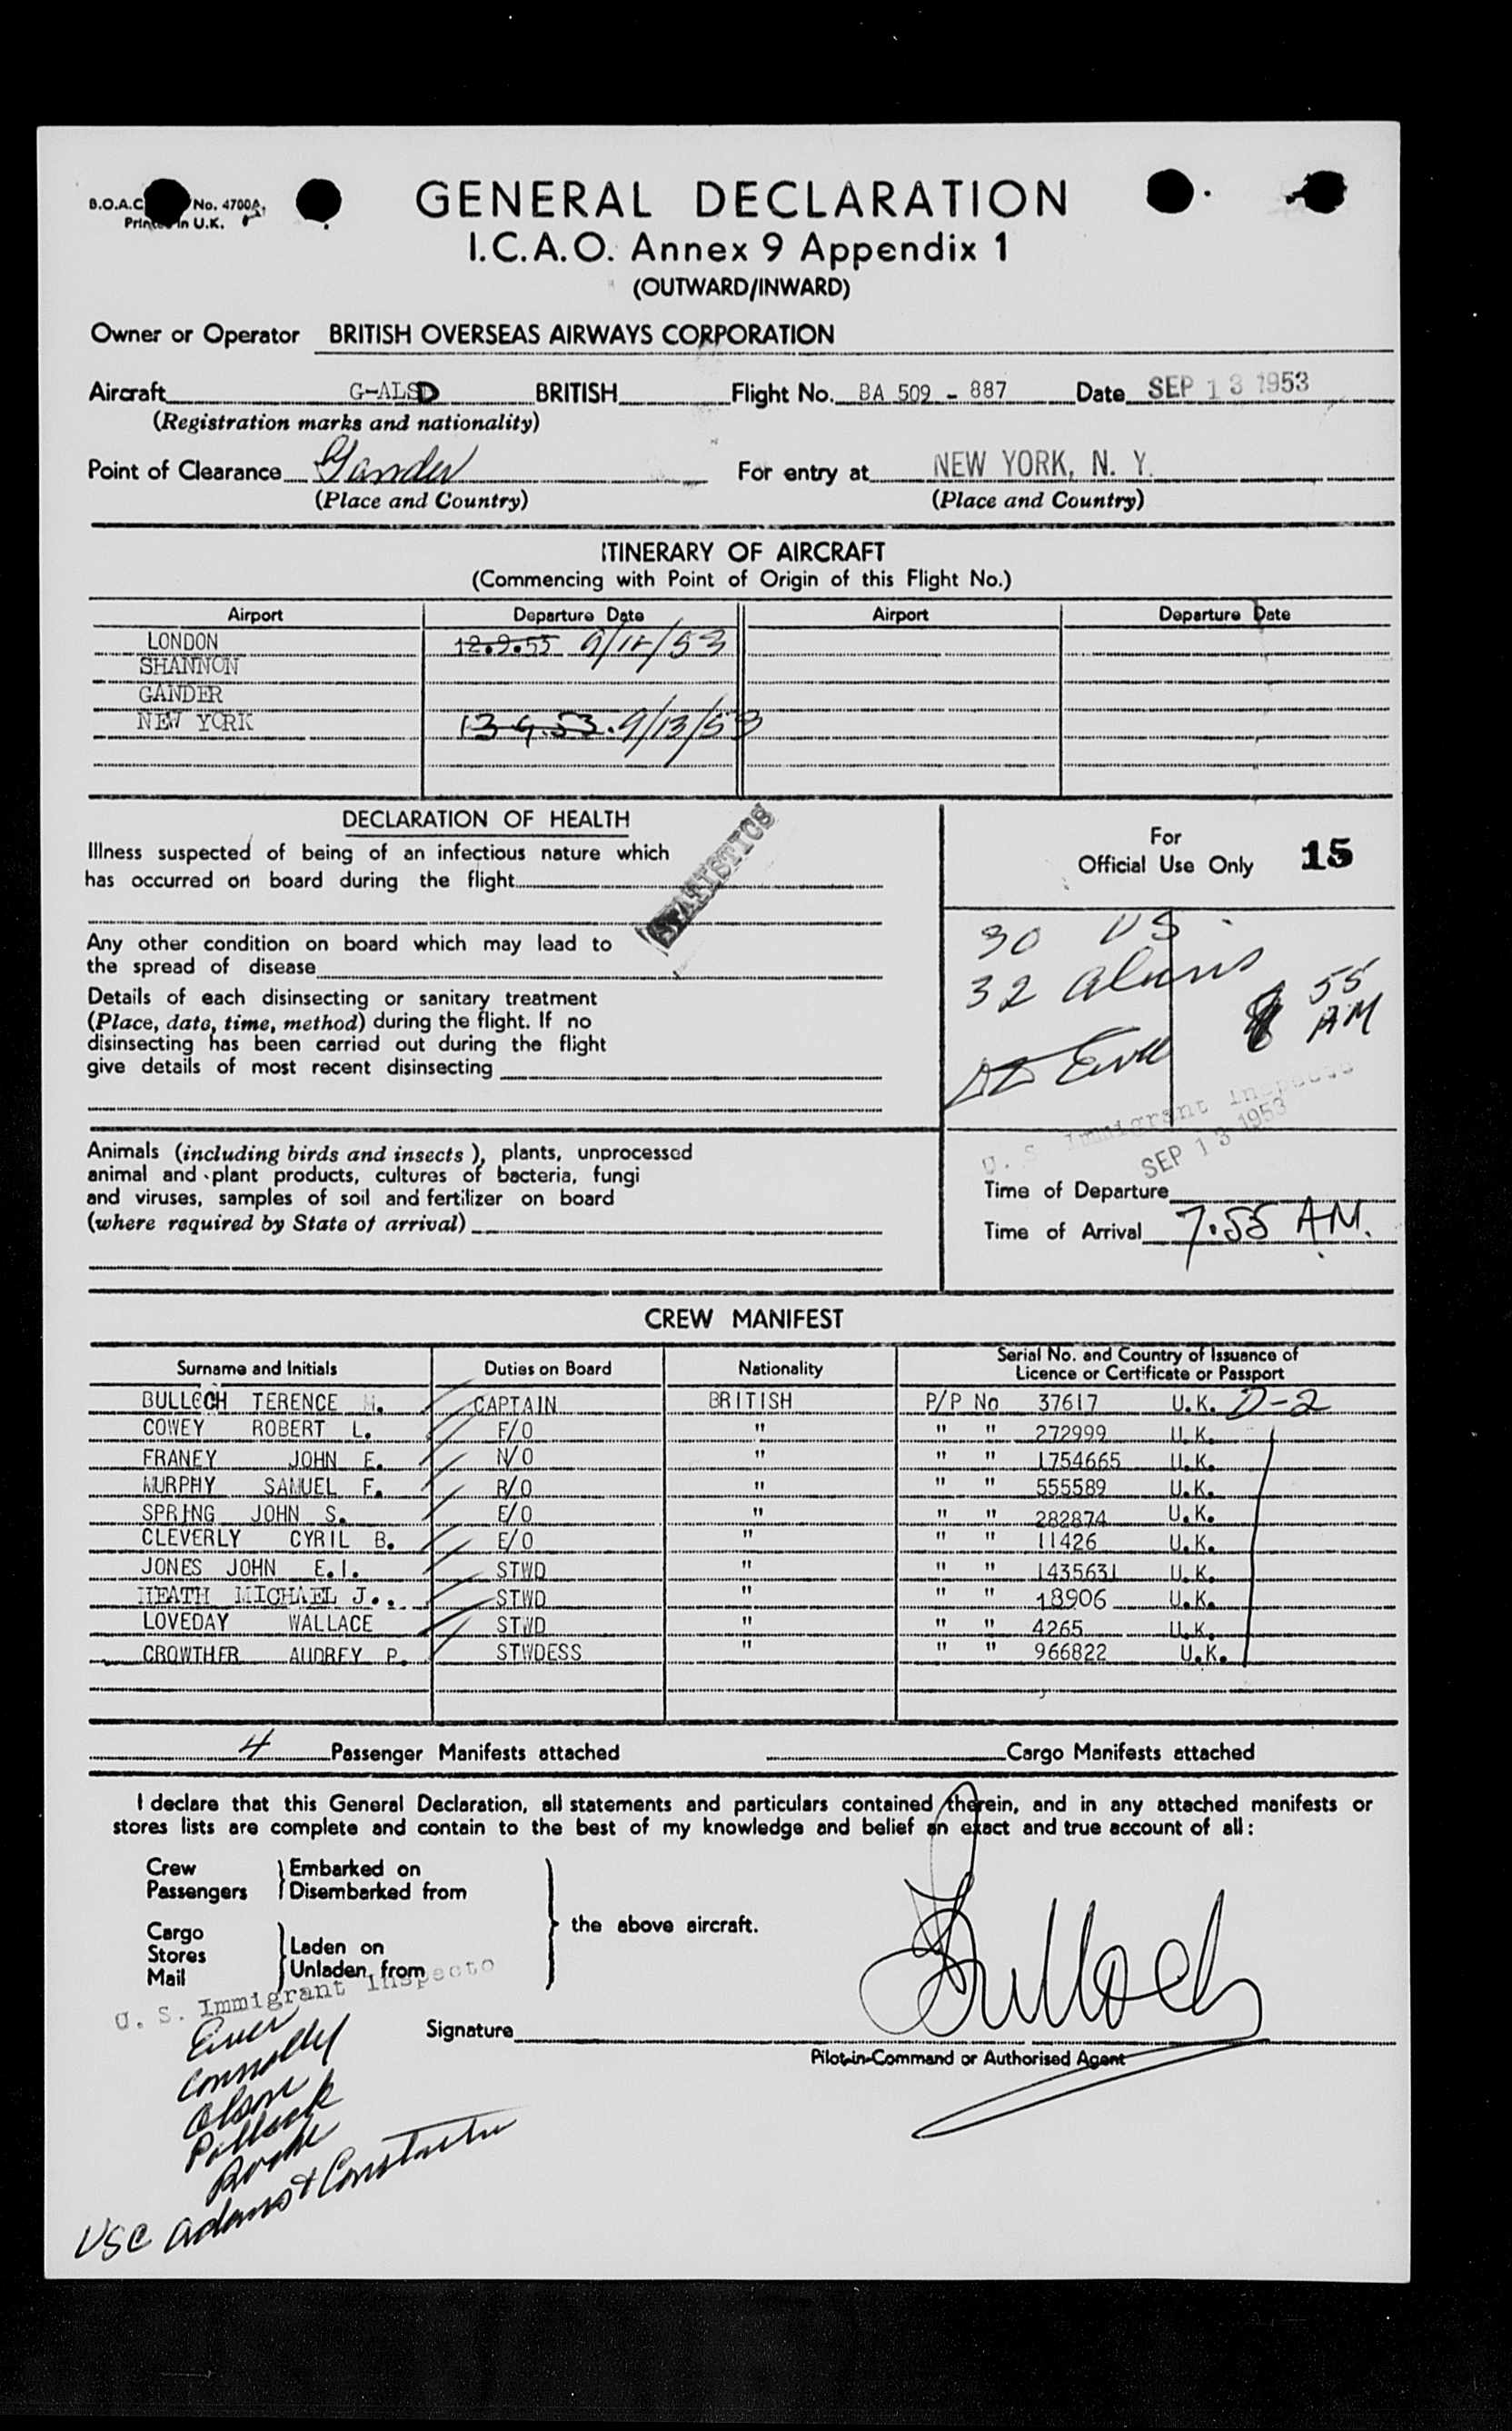 B.O.A.C. No. 4700A.
Printed in U.K.
GENERAL DECLARATION
I.C.A.O. Annex 9 Appendix 1
(OUTWARD/INWARD)
Owner or Operator BRITISH OVERSEAS AIRWAYS CORPORATION
Aircraft G-ALSD BRITISH Flight No. BA 509 - 887 Date SEP 13 1953
(Registration marks and nationality)
Point of Clearance Gander For entry at NEW YORK, N. Y.
(Place and Country) (Place and Country)
ITINERARY OF AIRCRAFT
(Commencing with Point of Origin of this Flight No.)
Airport Departure Date Airport Departure Date
LONDON 12.9.53 9/12/53
SHANNON
GANDER
NEW YORK 13.9.53. 9/13/53
DECLARATION OF HEALTH
Illness suspected of being of an infectious nature which
has occurred on board during the flight
STATISTICS
Any other condition on board which may lead to
the spread of disease
Details of each disinsecting or sanitary treatment
(Place, date, time, method) during the flight. If no
disinsecting has been carried out during the flight
give details of most recent disinsecting
Animals (including birds and insects), plants, unprocessed
animal and plant products, cultures of bacteria, fungi
and viruses, samples of soil and fertilizer on board
(where required by State of arrival)
For
Official Use Only 15
30 US
32 aliens
55
AM
U. S. Immigrant Inspecto
SEP 13 1953
Time of Departure
Time of Arrival 7.55 AM.
CREW MANIFEST
Surname and Initials Duties on Board Nationality Serial No. and Country of Issuance of
Licence or Certificate or Passport
BULLOCH TERENCE M. CAPTAIN BRITISH P/P No 37617 U.K. D-2
COWEY ROBERT L. F/O " " " 272999 U.K.
FRANEY JOHN E. N/O " " " 1754665 U.K.
MURPHY SAMUEL F. R/O " " " 555589 U.K.
SPRING JOHN S. E/O " " " 282874 U.K.
CLEVERLY CYRIL B. E/O " " " 11426 U.K.
JONES JOHN E.I. STWD " " " 1435631 U.K.
HEATH MICHAEL J.. STWD " " " 18906 U.K.
LOVEDAY WALLACE STWD " " " 4265 U.K.
CROWTHER AUDREY P. STWDESS " " " 966822 U.K.
4 Passenger Manifests attached Cargo Manifests attached
I declare that this General Declaration, all statements and particulars contained therein, and in any attached manifests or
stores lists are complete and contain to the best of my knowledge and belief an exact and true account of all:
Crew Embarked on
Passengers Disembarked from
the above aircraft.
Cargo
Stores Laden on
Mail Unladen from
U. S. Immigrant Inspecto
Signature Bulloch
Pilot-in-Command or Authorised Agent
Connolly
Olson
Pollack
USC Adams &